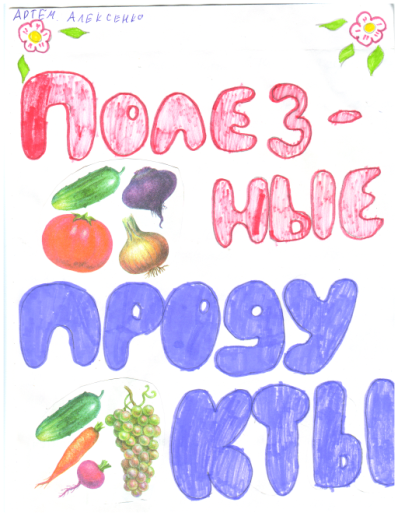 АРТЁМ АЛЕКСЕНКО
ПОЛЕЗ-
НЫЕ
ПРОДУ
КТЫ